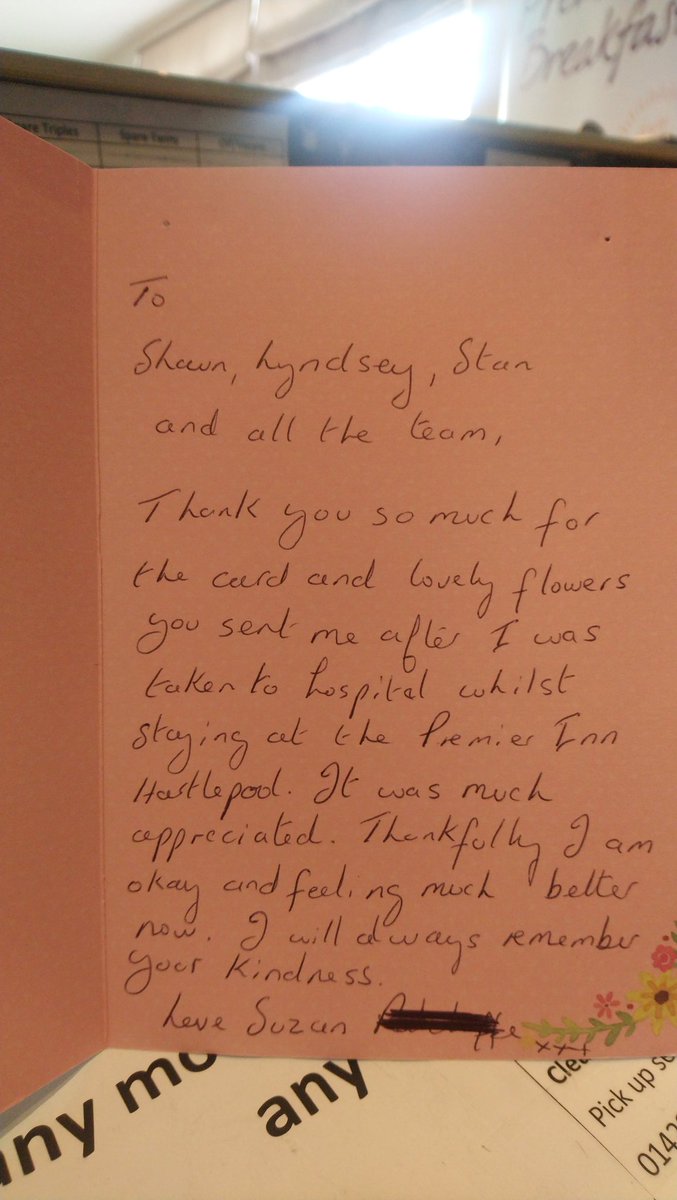 Breakfas
Triples
Spare Twins
To
Shawn, Lyndsey, Stan
and all the team,
Thank you so much for
the card and lovely flowers
you sent me after I was
taken to hospital whilst
staying at the Premier Inn
Hartlepool. It was much
appreciated. Thankfully I am
okay and feeling much better
now. I will always remember
your kindness.
Love Suzan
xxx
any mo
any
Clea
Pick up